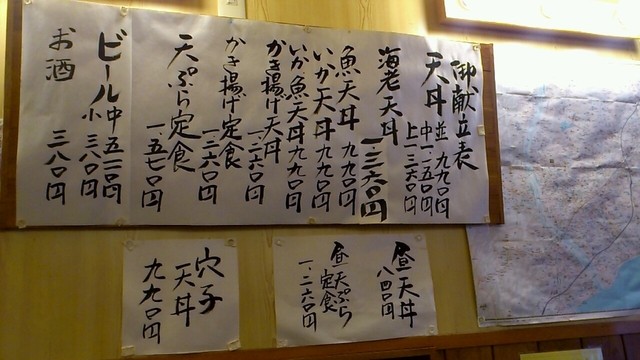 御献立表
天丼 並 九九〇円
中 一、一五〇円
上 一、三六〇円
海老天丼 一、三六〇円
魚天丼 九九〇円
いか天丼 九九〇円
いか魚天丼 九九〇円
かき揚げ天丼 一、二六〇円
かき揚げ定食 一、二六〇円
天ぷら定食 一、五七〇円
ビール 中 五二〇円
小 三八〇円
お酒 三八〇円
昼天丼
八四〇円
昼天ぷら
定食
一、二六〇円
穴子
天丼
九九〇円